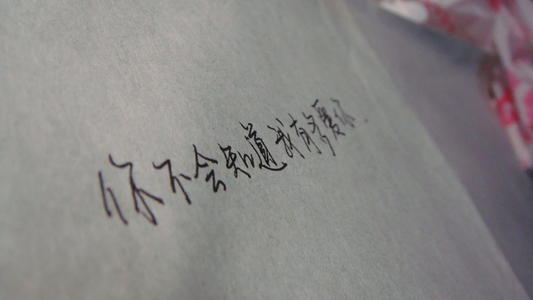 你不会知道我有多爱你.